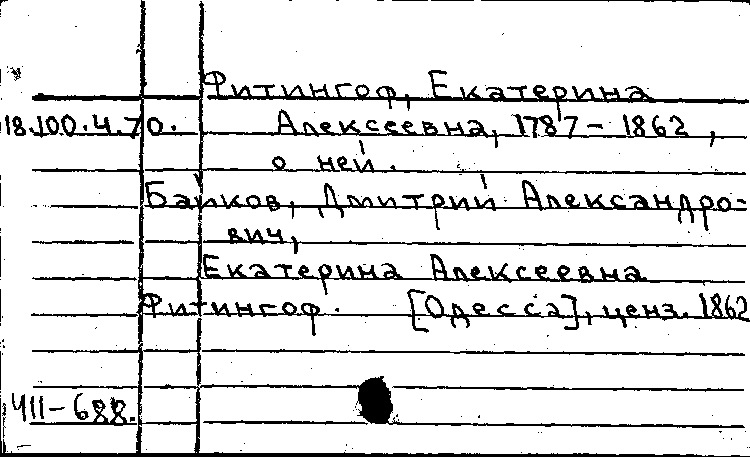 Фитингоф, Екатерина
18.100.4.70. Алексеевна, 1787-1862,
о ней.
Байков, Дмитрий Александро-
вич,
Екатерина Алексеевна
Фитингоф. [Одесса], ценз. 1862
411-688.